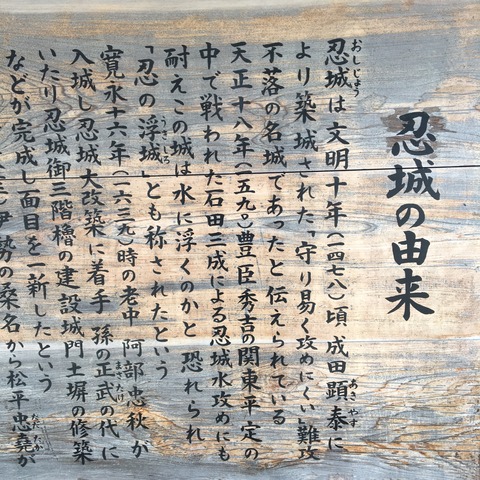 忍城の由来
忍城は文明十年(一四七八)頃成田顕泰に
より築城された「守り易く攻めにくい」難攻
不落の名城であったと伝えられている
天正十八年(一五九〇)豊臣秀吉の関東平定の
中で戦われた石田三成による忍城水攻めにも
耐えこの城は水に浮くのかと恐れられ
「忍の浮城」とも称されたという
寛永十六年(一六三九)時の老中 阿部忠秋が
入城し忍城大改築に着手 孫の正武の代に
いたり忍城御三階櫓の建設城門土塀の修築
などが完成し面目を一新したという
伊勢の桑名から松平忠堯が